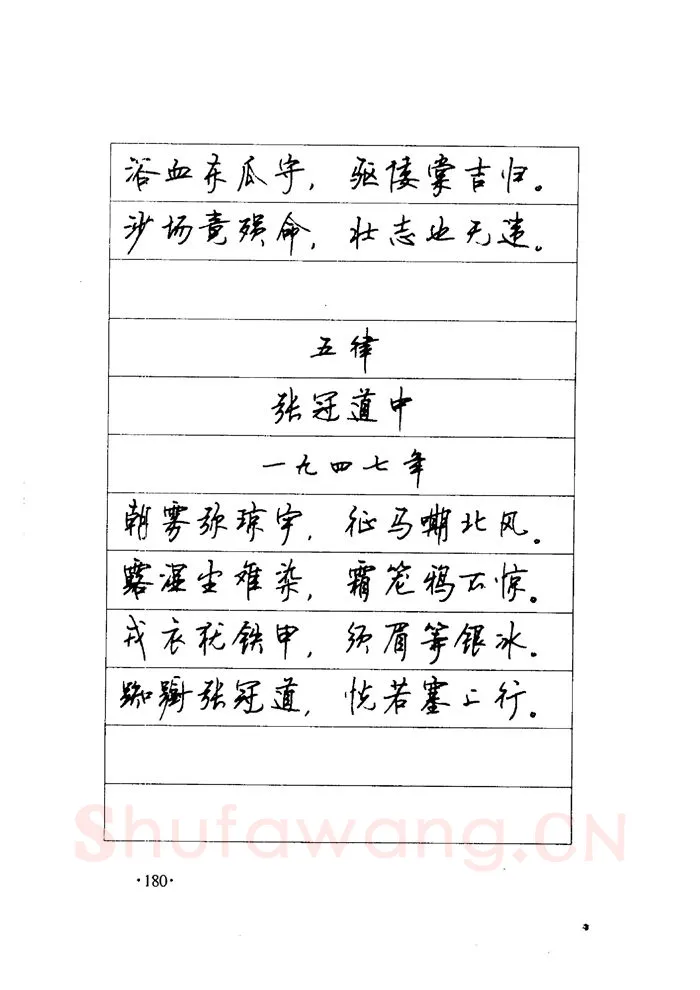 浴血东瓜守，驱倭棠吉归。
沙场竟殒命，壮志也无违。
五律
张冠道中
一九四七年
朝雾弥琼宇，征马嘶北风。
露湿尘难染，霜笼鸦不惊。
戎衣犹铁甲，须眉等银冰。
踟蹰张冠道，恍若塞上行。
Shufawang.CN
·180·